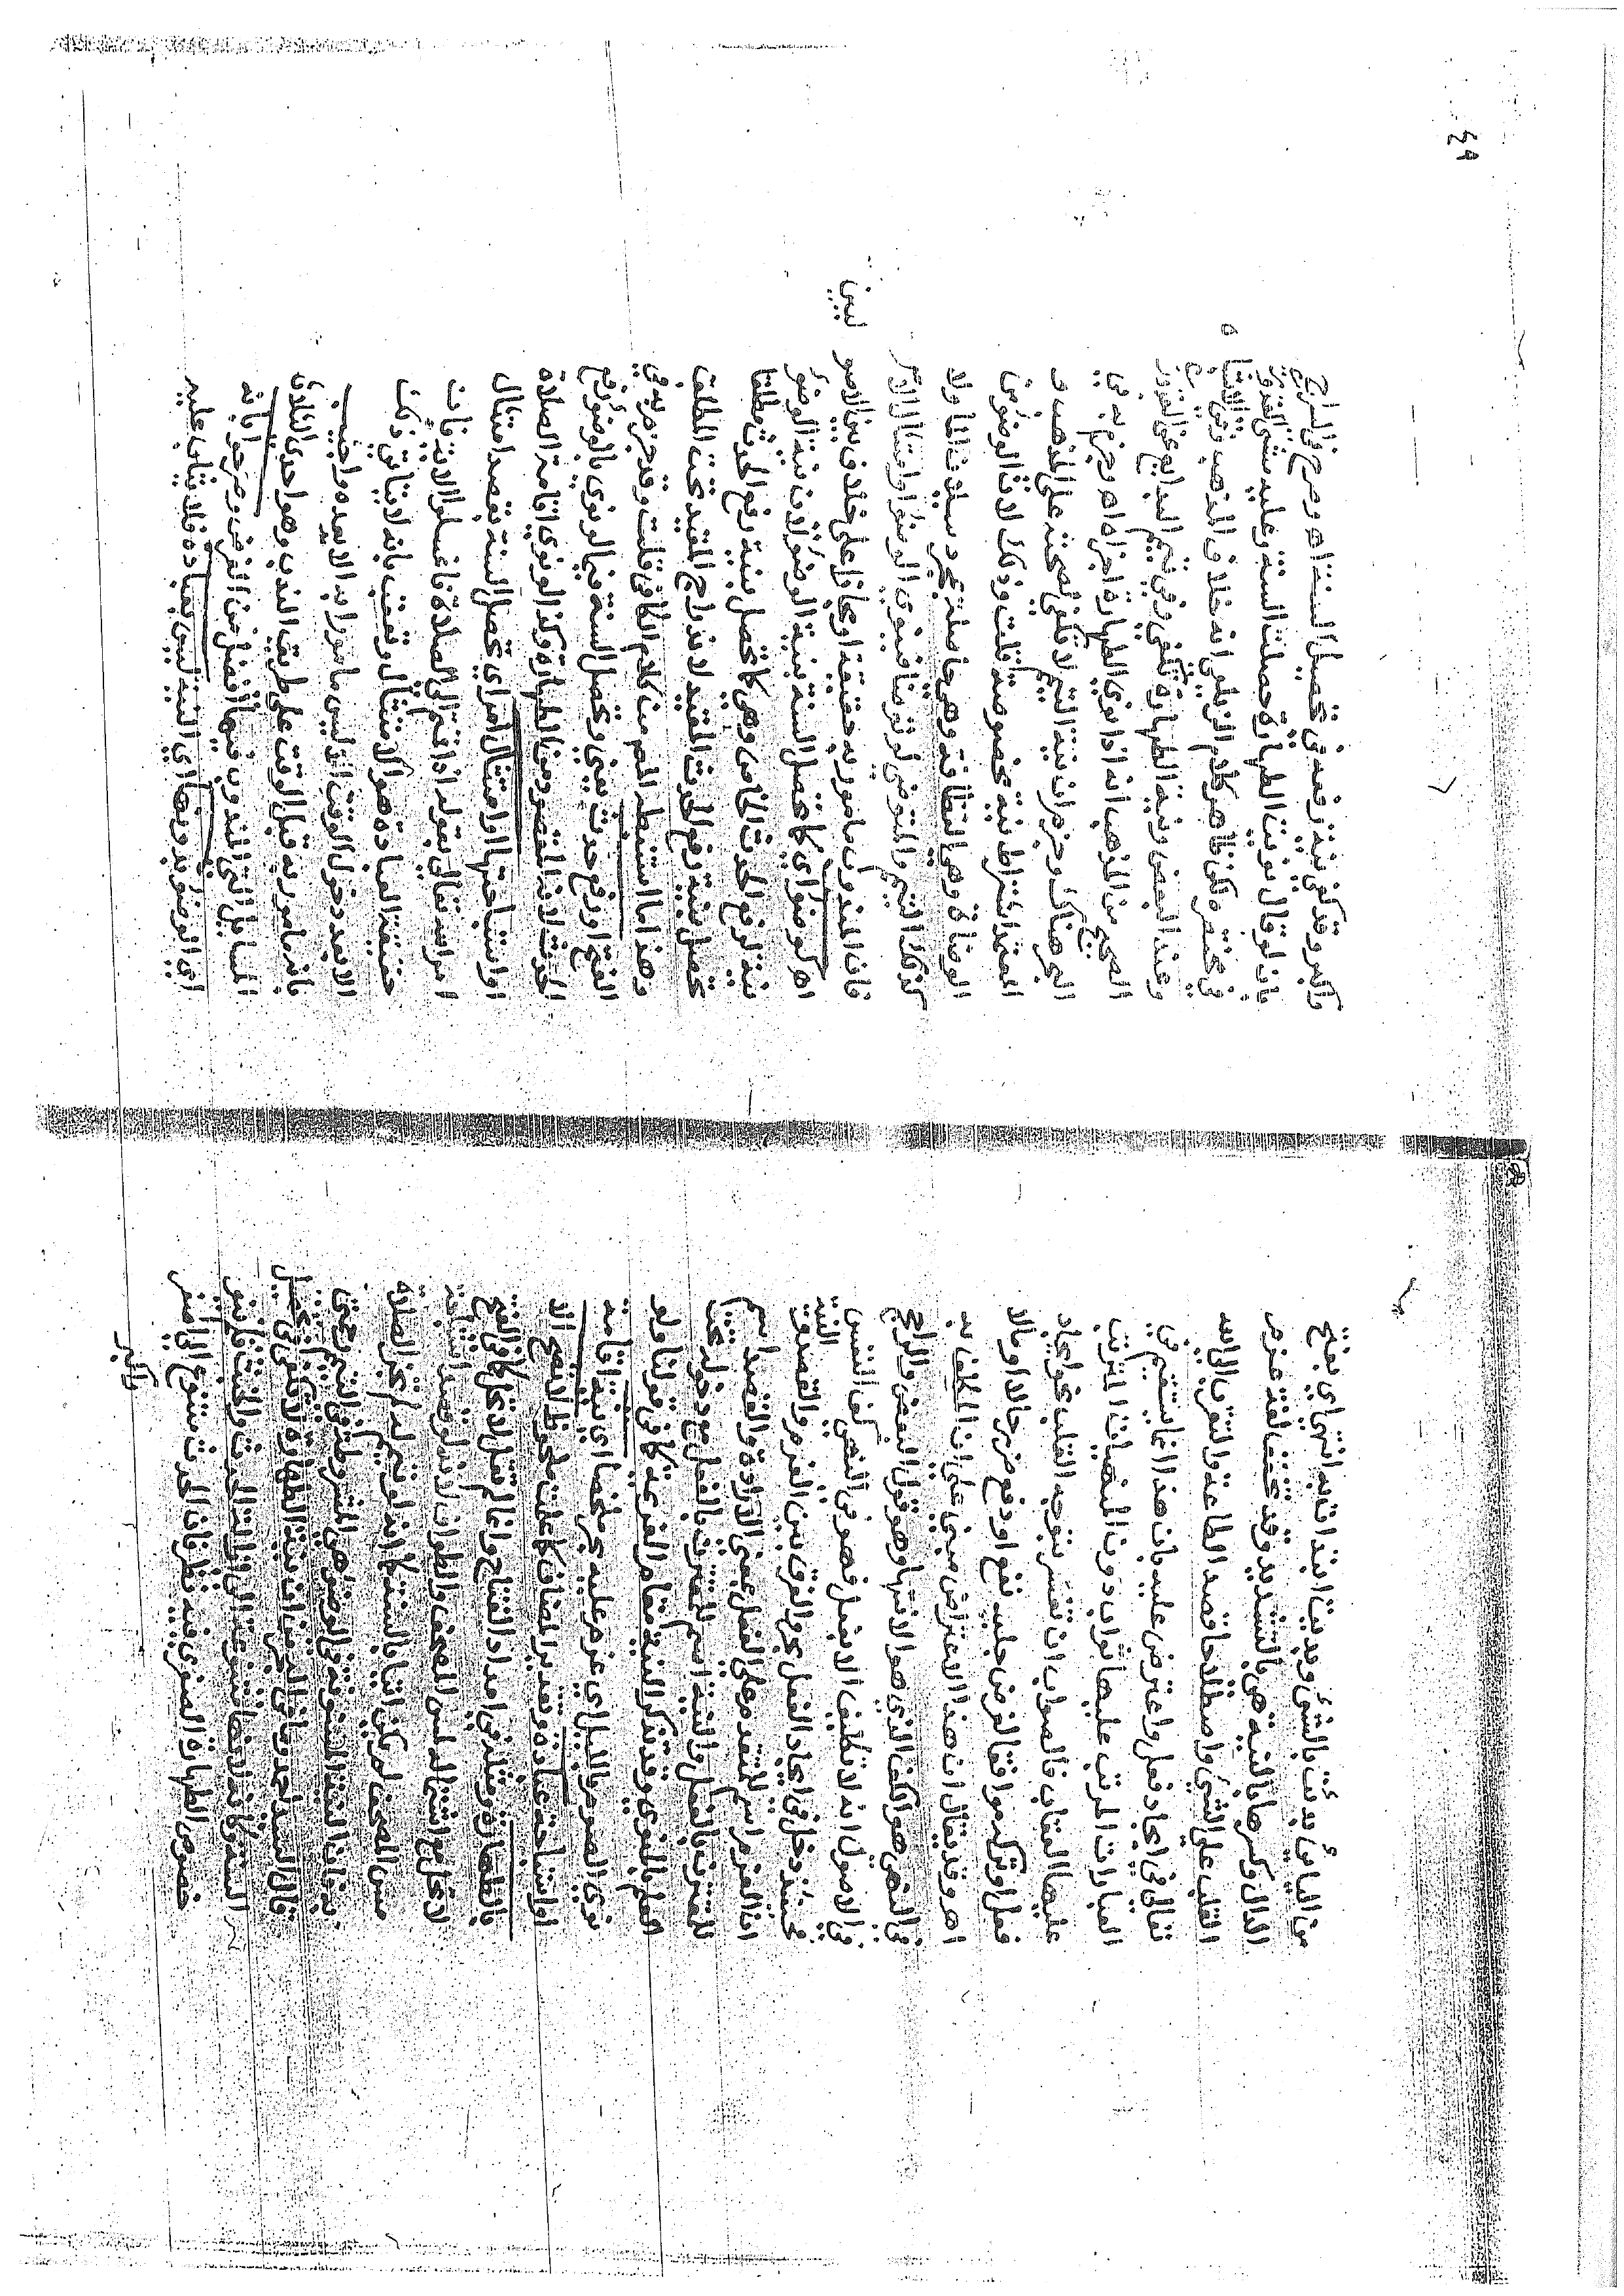 من الياس بدئت بالشئ وبديت ابتدات به انتهى اي بفتح
الدال وكسرها النية هي بالتشديد وقد تخفف لغة عزم
القلب على الشئ واصطلاحا قصد الطاعة والتقرب الى الله
تعالى في ايجاد فعل واعترض عليه بان هذا انما يستقيم في
العبادات المرتب عليها ثواب دون المنهيات المترتب
عليها العقاب فالصواب ان تفسر بتوجه القلب نحو ايجاد
فعل او تركه موافقا لغرض جلب نفع او دفع ضر حالا او مالا
اهـ وقد يقال ان هذا الاعتراض مبني على ان المكلف به
في النهي هو الكف الذي هو الانتها وهو قول البعض والراجح
في الاصول انه لا تكليف الا بفعل فهو في النهي كف النفس
فحينئذ دخل في ايجاد الفعل بحر والفرق بين العزم والقصد والنية
ان العزم اسم للمتقدم على الفعل بمعنى الارادة والقصد اسم
للمقترن بالفعل والنية اسم للمقترن بالفعل مع دخوله تحت
العلم بالمنوي وقد تذكر النية مقام العزيمة كما في قولنا ولو
نوى الصوم بالليل اي عزم عليه بحر ملخصا اي نية اقامة
او استباحة عبادة وتقدير المضاف كما علمت ملحوظ لا تصح الا
بالطهارة ومثله في امداد الفتاح وانما لم تقل لا تحل كما في الفتح
لا تحل مع المس المصحف والطواف لانه لو قصد استباحة
مس المصحف لم يكن اتيا بالسنة كما انه لو تيمم له لم تجز الصلاة
به فان النية المسنونة في الوضوء هي المشروطة في التيمم
قال السيد احمد وما في الدر من ان نية الطهارة لا تكفي في تحصيل
السنة وكانه لانها متنوعة الى ازالة الحدث والخبث فلم ينو
خصوص الطهارة الصغرى فيه نظر فان الحدث متنوع الى اصغر
واكبر
٤٩
واكبر وقد كفى نية رفعه في تحصيل السنة اه وصرح في السراج
بانه لو قال نويت الطهارة حصلت السنة وعليه مشى الغزي
في مختصره لكن ظاهر كلام الزيلعي انه خلاف المذهب وفي الاشباه
وعند البعض ونية الطهارة تكفي وفي تيمم البدايع عن القدوري
الصحيح من المذهب انه اذا نوى الطهارة اجزاه اه وجزم به في
البحر هناك وجزم هنا ان نية التيمم لا تكفي لصحته على المذهب و
المعتمد اشتراط نية مخصوصة قلت وذلك لان الوضوء من
الوضاءة وهي النظافة وهي حاصلة بمجرد سيلان الماء ولا
كذلك التيمم والمتوضي لو توضا فينوي الوضوء او امتثال الامر
فان المندوب مامور به حقيقة او مجازا على خلاف بين الاصوليين
اهـ كوضوء اي كما تحصل السنة بنية الوضوء لان نية الوضوء
نية لرفع الحدث الخاص وهي كما تحصل بنية رفع الحدث مطلقا
تحصل بنية رفع الحدث المقيد لاندراج المقيد تحت المطلق
وهذا ما استنبطه المص من كلام الكافي قلت وقد جزم به في
الفتح او رفع حدث يعني وتحصل السنة فيما لو نوى بالوضوء رفع
الحدث لانه المقصود من الطهارة وكذا لو نوى اقامة الصلاة
او استباحتها او امتثال امر اي تحصل السنة بقصد امتثال
امر الله تعالى بقوله اذا قمتم الى الصلاة فاغسلوا الاية فان
حقيقة العبادة هو الامتثال وتعقب بانه لا يتاتى ذلك
الا بعد دخول الوقت اذ ليس مامورا به الا بعده واجيب
بانه مامور به قبل الوقت على طريق الندب وهو احدى الثلاث
المسايل التي المندوب فيها افضل من الفرض وصرحوا بانه
اي الوضوء بدونها اي النية ليس بعبادة فلا يثاب عليه